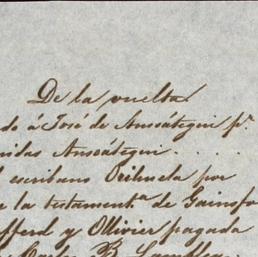 De la vuelta
do á José de Ansoátegui pr.
Ansoátegui . . . .
escribano Orihuela por
la testamenta. de Gainsfo
fferd y Ollivier pagada
Carlos B.